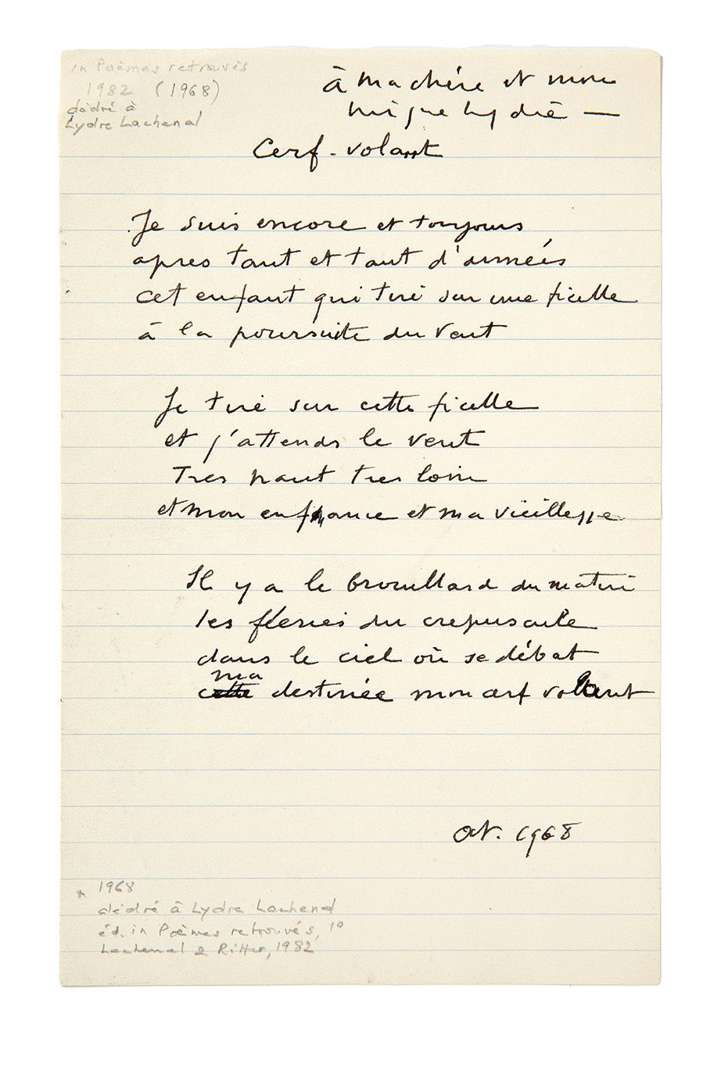 in Poèmes retrouvés
1982 (1968)
dédié à
Lydie Lachenal
à ma chère et mon
unique Lydie —
Cerf-volant
Je suis encore et toujours
apres tant et tant d'années
cet enfant qui tire sur une ficelle
à la poursuite du vent
Je tire sur cette ficelle
et j'attends le vent
Tres haut tres loin
et mon enfance et ma vieillesse
Il y a le brouillard du matin
les fleurs du crepuscule
dans le ciel où se débat
ma
cette destinée mon cerf volant
oct. 1968
* 1968
dédié à Lydie Lachenal
éd. in Poèmes retrouvés,
Lachenal & Ritter, 1982